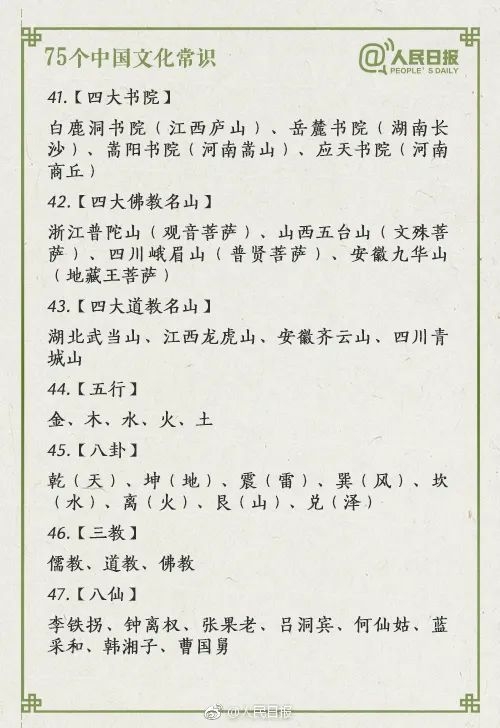 75个中国文化常识
@人民日报
PEOPLE'S DAILY
41.【四大书院】
白鹿洞书院（江西庐山）、岳麓书院（湖南长
沙）、嵩阳书院（河南嵩山）、应天书院（河南
商丘）
42.【四大佛教名山】
浙江普陀山（观音菩萨）、山西五台山（文殊菩
萨）、四川峨眉山（普贤菩萨）、安徽九华山
（地藏王菩萨）
43.【四大道教名山】
湖北武当山、江西龙虎山、安徽齐云山、四川青
城山
44.【五行】
金、木、水、火、土
45.【八卦】
乾（天）、坤（地）、震（雷）、巽（风）、坎
（水）、离（火）、艮（山）、兑（泽）
46.【三教】
儒教、道教、佛教
47.【八仙】
李铁拐、钟离权、张果老、吕洞宾、何仙姑、蓝
采和、韩湘子、曹国舅
@人民日报